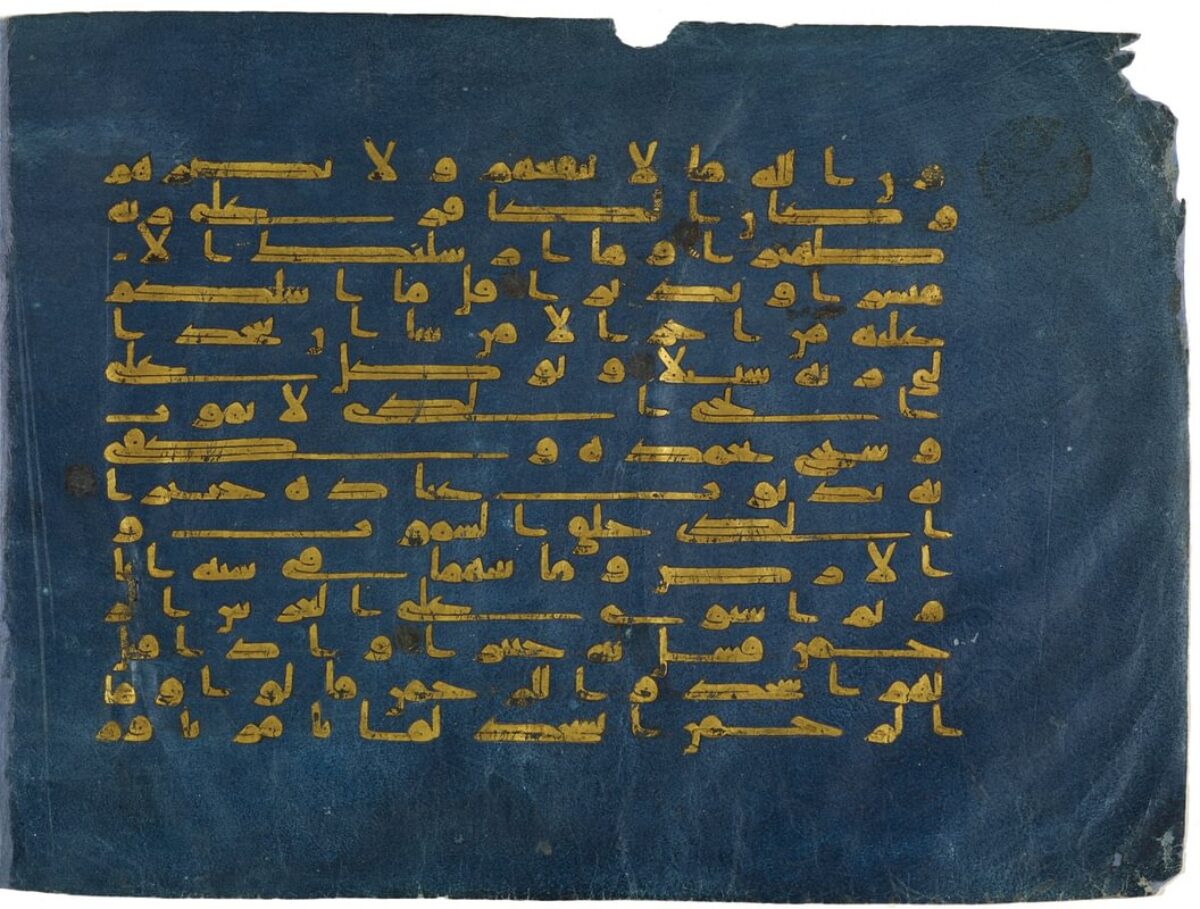 ون الله ما لا ينفعهم ولا يضرهم
وكان الكافر على ربه
ظهيرا وما ارسلنك الا
مبشرا ونذيرا قل ما اسلكم
عليه من اجر الا من شا ان يتخذ ا
لى ربه سبيلا وتوكل على
الحى الذى لا يموت
وسبح بحمده وكفى
به بذنوب عباده خبيرا
الذى خلق السموت و
الارض وما بينهما فى سته ايا
م ثم استوى على العرش الر
حمن فسل به خبيرا واذا قيل
لهم اسجدوا للرحمن قالوا وما
الرحمن انسجد لما تامرنا وز